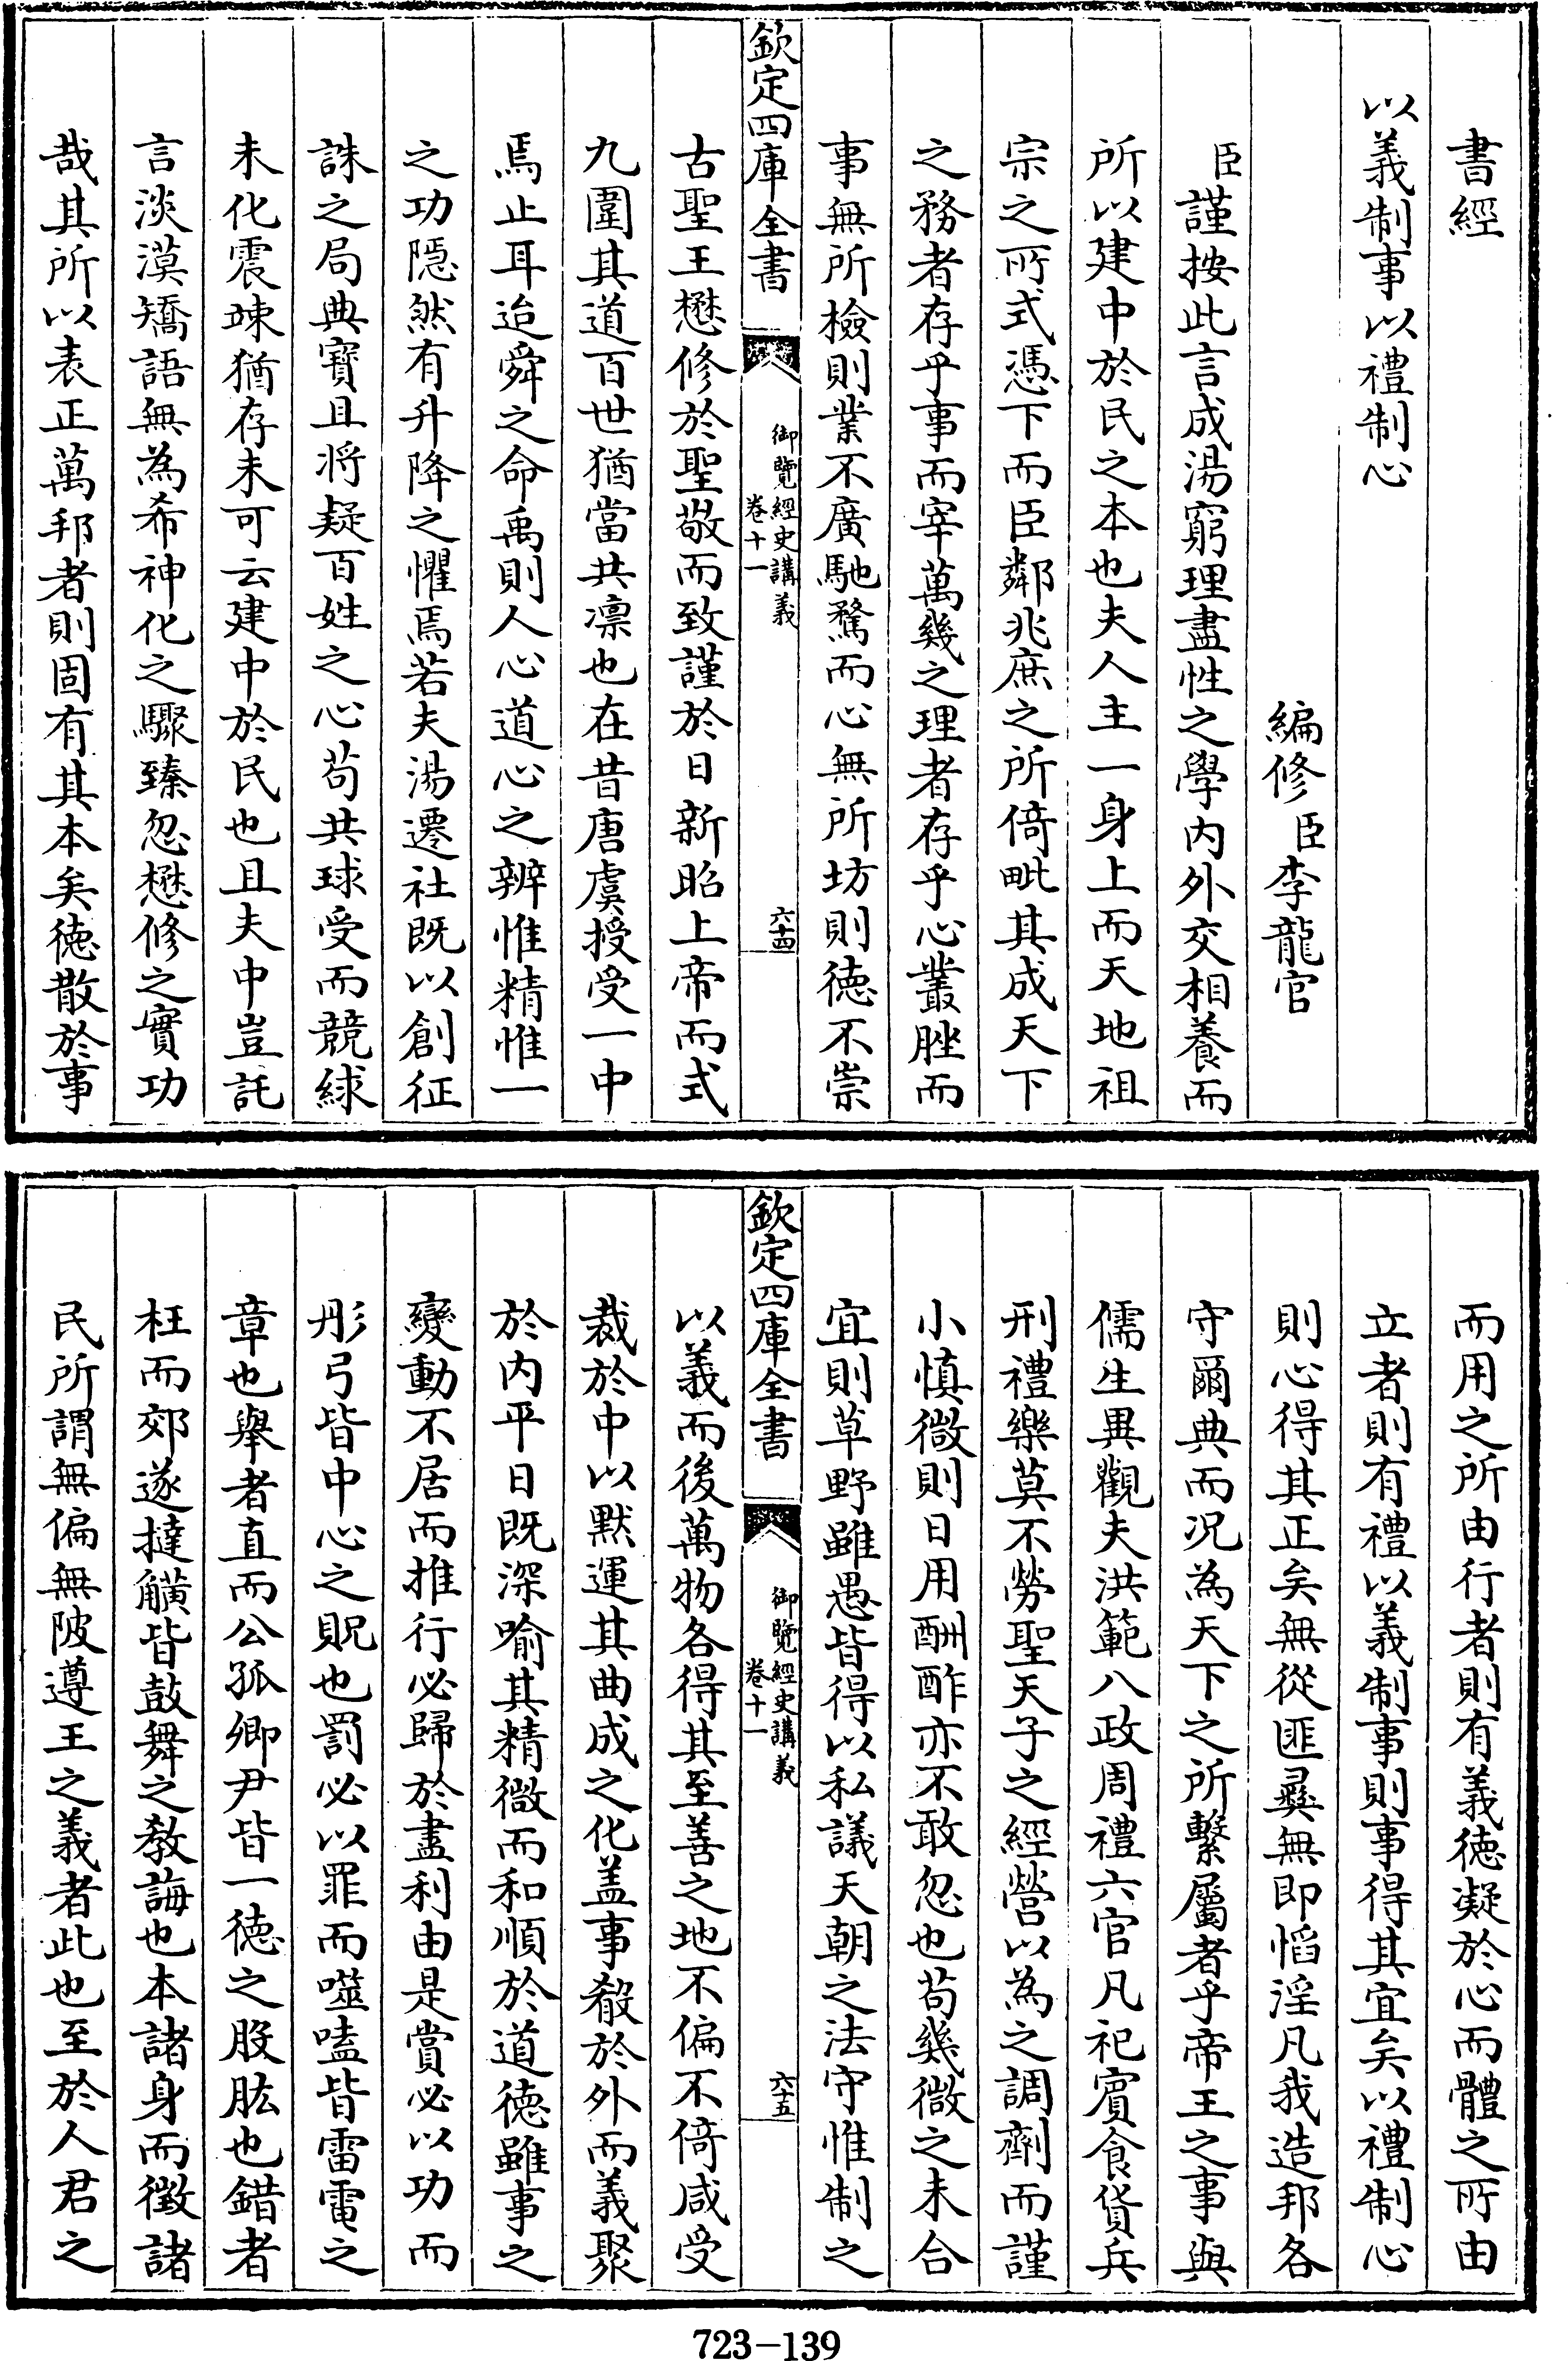 書經
以義制事以禮制心
編修臣李龍官
臣謹按此言成湯窮理盡性之學內外交相養而
所以建中於民之本也夫人主一身上而天地祖
宗之所式憑下而臣鄰兆庶之所倚毗其成天下
之務者存乎事而宰萬幾之理者存乎心叢脞而
事無所檢則業不廣馳騖而心無所坊則徳不崇
欽定四庫全書
御覽經史講義
卷十一
六十四
古聖王懋修於聖敬而致謹於日新昭上帝而式
九圍其道百世猶當共凛也在昔唐虞授受一中
焉止耳迨舜之命禹則人心道心之辨惟精惟一
之功隠然有升降之懼焉若夫湯遷社既以創征
誅之局典寳且將疑百姓之心苟共球受而競絿
未化震竦猶存未可云建中於民也且夫中豈託
言淡漠矯語無為希神化之驟臻忽懋修之實功
哉其所以表正萬邦者則固有其本矣徳散於事
而用之所由行者則有義徳凝於心而體之所由
立者則有禮以義制事則事得其宜矣以禮制心
則心得其正矣無從匪彛無即慆淫凡我造邦各
守爾典而况為天下之所繫屬者乎帝王之事與
儒生異觀夫洪範八政周禮六官凡祀賓食貨兵
刑禮樂莫不勞聖天子之經營以為之調劑而謹
小慎微則日用酬酢亦不敢忽也苟幾微之未合
宜則草野雖愚皆得以私議天朝之法守惟制之
欽定四庫全書
御覽經史講義
卷十一
六十五
以義而後萬物各得其至善之地不偏不倚咸受
裁於中以默運其曲成之化盖事殽於外而義聚
於内平日既深喻其精微而和順於道徳雖事之
變動不居而推行必歸於盡利由是賞必以功而
彤弓皆中心之貺也罰必以罪而噬嗑皆雷電之
章也舉者直而公孤卿尹皆一徳之股肱也錯者
枉而郊遂撻觵皆鼓舞之教誨也本諸身而徵諸
民所謂無偏無陂遵王之義者此也至於人君之
723-139